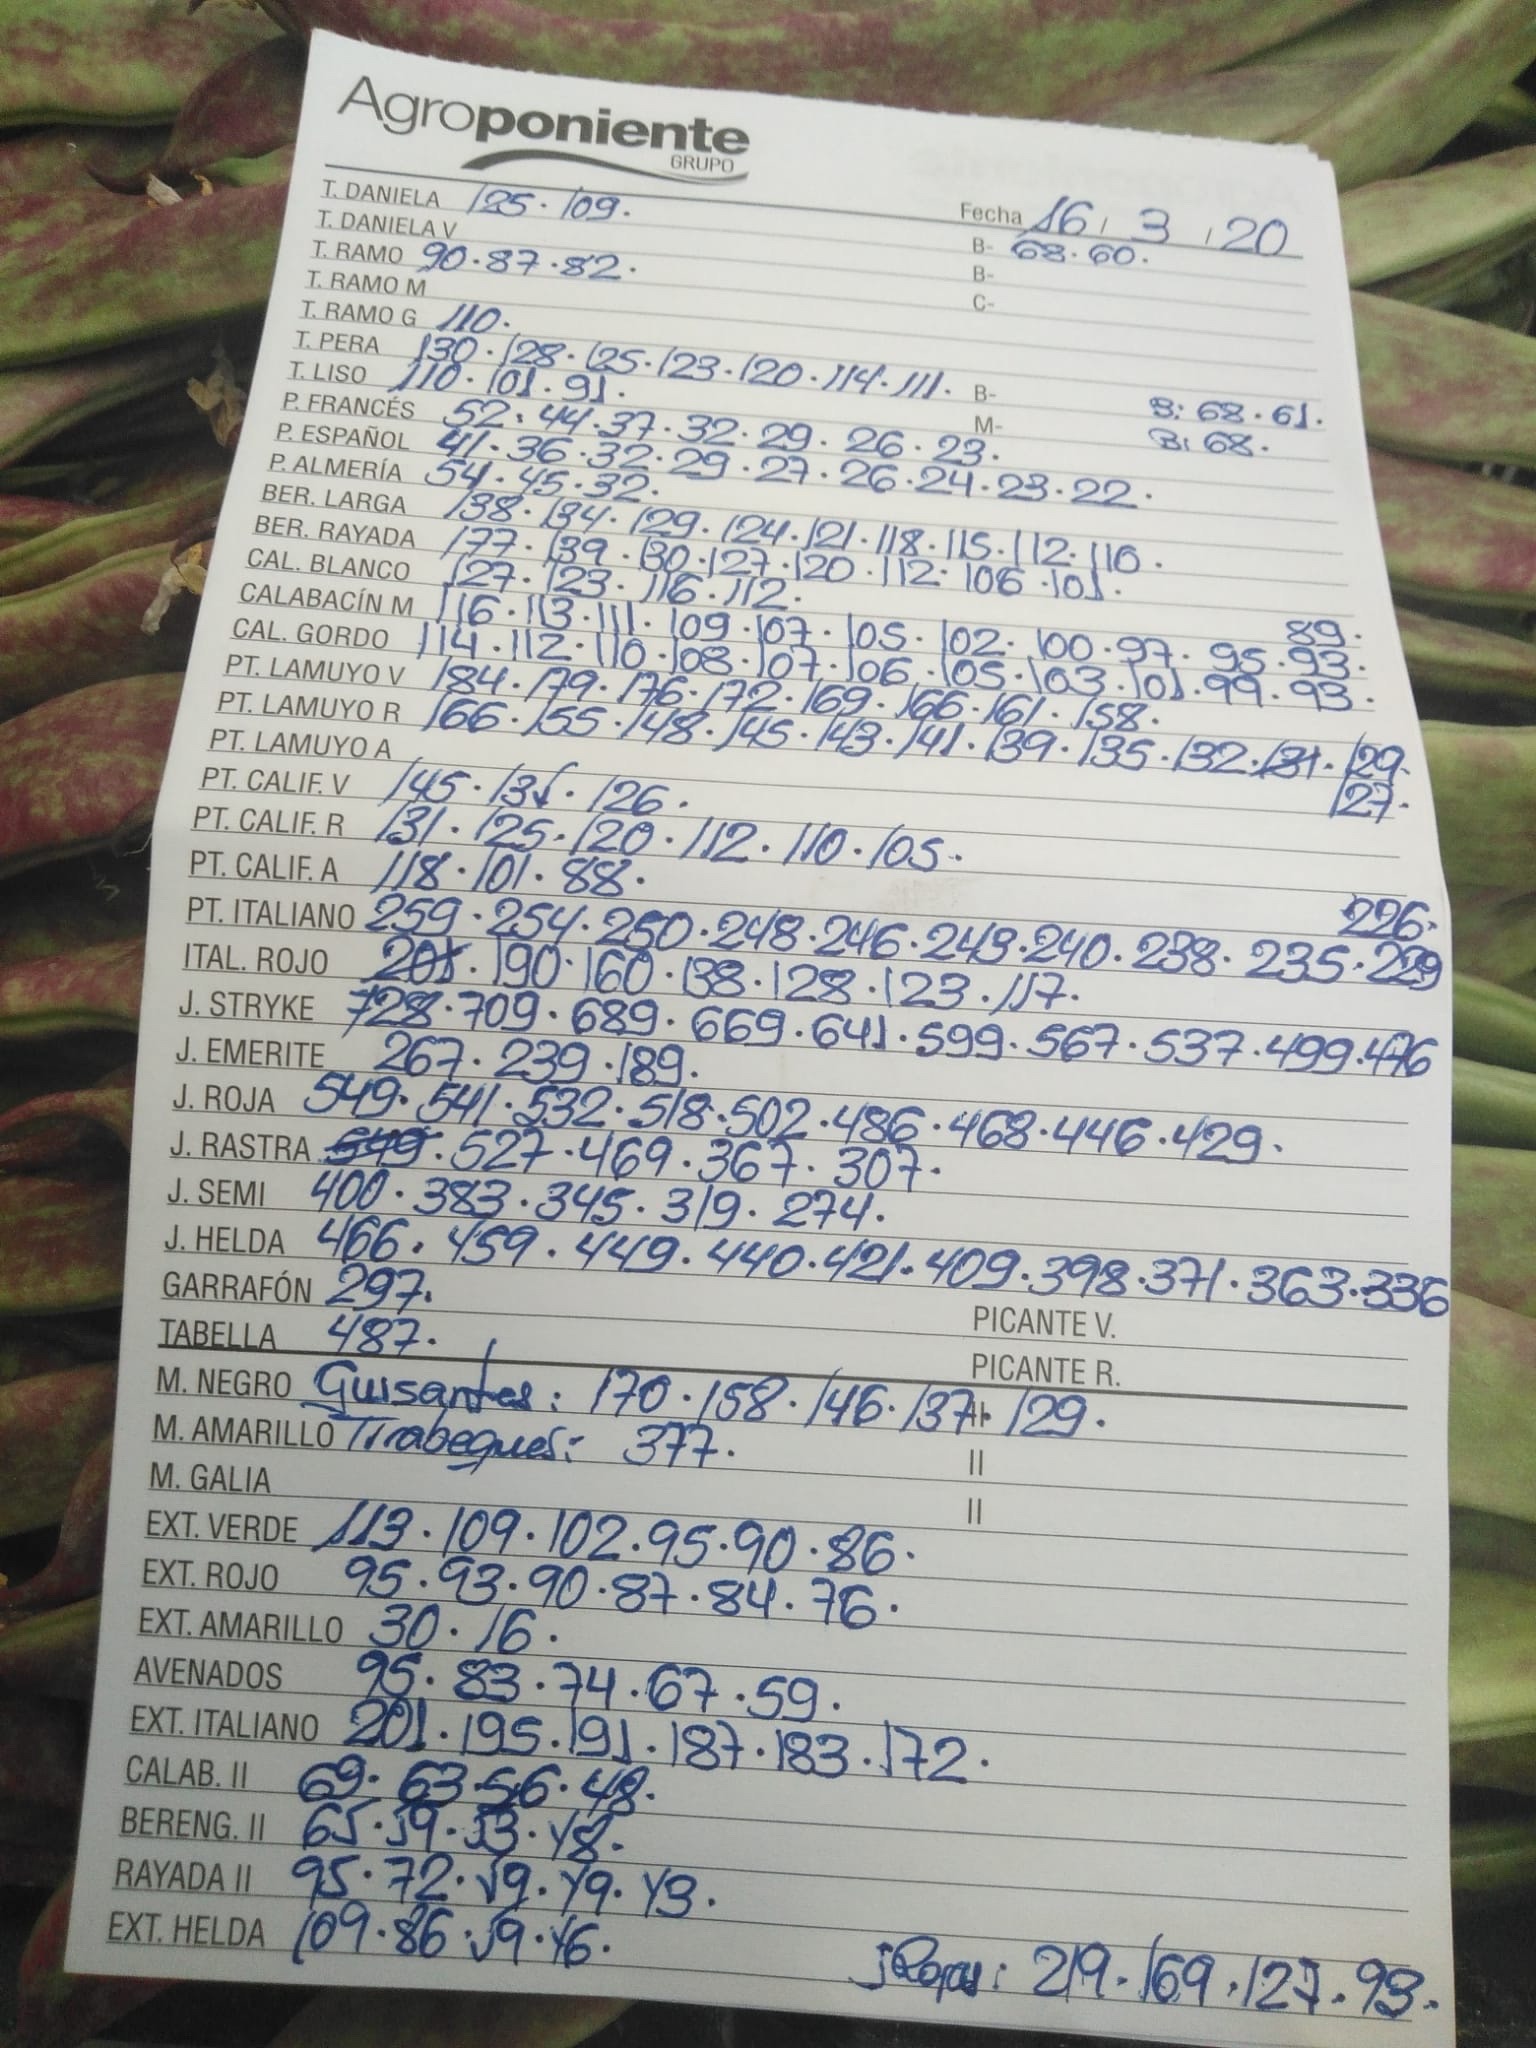 Agroponiente
GRUPO
T. DANIELA 125. 109. Fecha 16 / 3 / 20
T. DANIELA V B- 68.60.
T. RAMO 90.87.82. B-
T. RAMO M C-
T. RAMO G 110.
T. PERA 130.128.125.123.120.114.111. B- B: 68.61.
T. LISO 110.101.91. M- B: 68.
P. FRANCÉS 52.44.37.32.29.26.23.
P. ESPAÑOL 41.36.32.29.27.26.24.23.22.
P. ALMERÍA 54.45.32.
BER. LARGA 138.134.129.124.121.118.115.112.110.
BER. RAYADA 177.139.130.127.120.112.106.101.
CAL. BLANCO 127.123.116.112. 89.
CALABACÍN M 116.113.111.109.107.105.102.100.97.95.93.
CAL. GORDO 114.112.110.108.107.106.105.103.101.99.93.
PT. LAMUYO V 184.179.176.172.169.166.161.158.
PT. LAMUYO R 166.155.148.145.143.141.139.135.132.131.129.
PT. LAMUYO A 127.
PT. CALIF. V 145.135.126.
PT. CALIF. R 131.125.120.112.110.105.
PT. CALIF. A 118.101.88. 226.
PT. ITALIANO 259.254.250.248.246.243.240.238.235.229
ITAL. ROJO 201.190.160.138.128.123.117.
J. STRYKE 728.709.689.669.641.599.567.537.499.476
J. EMERITE 267.239.189.
J. ROJA 549.541.532.518.502.486.468.446.429.
J. RASTRA 549.527.469.367.307.
J. SEMI 400.383.345.319.274.
J. HELDA 466.459.449.440.421.409.398.371.363.336
GARRAFÓN 297. PICANTE V.
TABELLA 487. PICANTE R.
M. NEGRO Guisantes: 170.158.146.137. II 129.
M. AMARILLO Tirabeques: 377. II
M. GALIA II
EXT. VERDE 113.109.102.95.90.86.
EXT. ROJO 95.93.90.87.84.76.
EXT. AMARILLO 30.16.
AVENADOS 95.83.74.67.59.
EXT. ITALIANO 201.195.191.187.183.172.
CALAB. II 69.63.56.48.
BERENG. II 65.59.53.48.
RAYADA II 95.72.59.49.43.
EXT. HELDA 109.86.59.46.
J Rojas: 219.169.127.93.